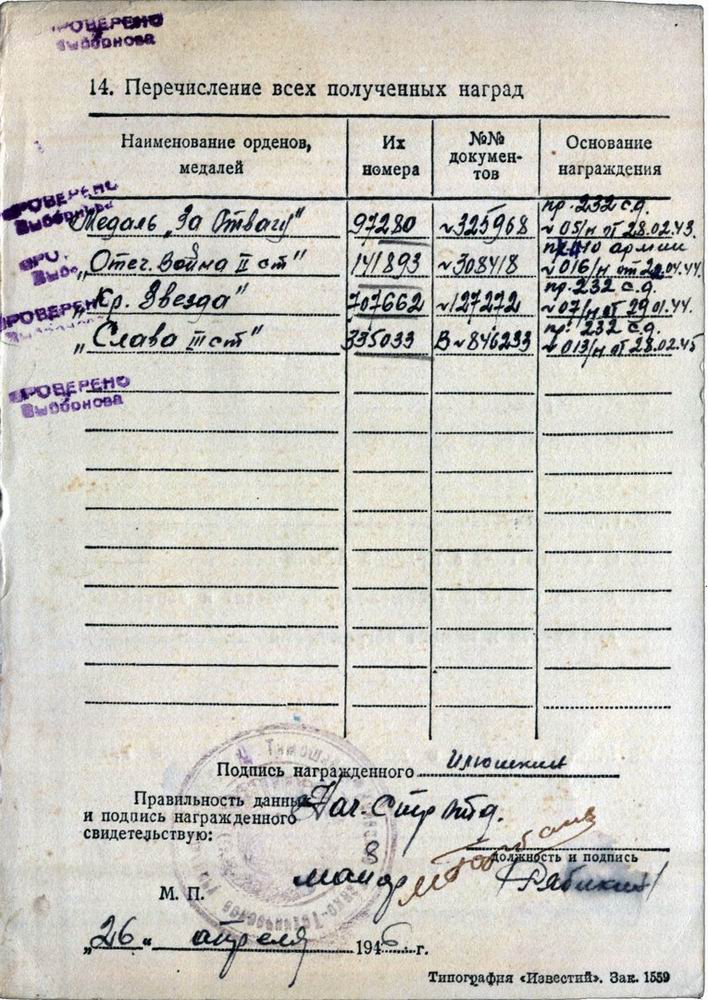 ПРОВЕРЕНО
Выборнова
14. Перечисление всех полученных наград
Наименование орденов, медалей
Их номера
№№ документов
Основание награждения
ПРОВЕРЕНО
Медаль „За Отвагу" 97280 №325968 пр. 232 с.д. №05/н от 28.02.43.
„Отеч. Война II ст" 141893 №308418 армии №016/н от
ПРОВЕРЕН
„Кр. Звезда" 707662 №127272 пр. 232 с.д. №07/н от 29.01.44.
„Слава III ст" 335033 В№846233 пр. 232 с.д. №013/н от 28.02.45
ПРОВЕРЕНО
Выборнова
Подпись награжденного Илюшкин
Правильность данных
и подпись награжденного
свидетельствую:
Нач.
должность и подпись
майор
М. П.
„26" апреля 1946 г.
Типография «Известий». Зак. 1559